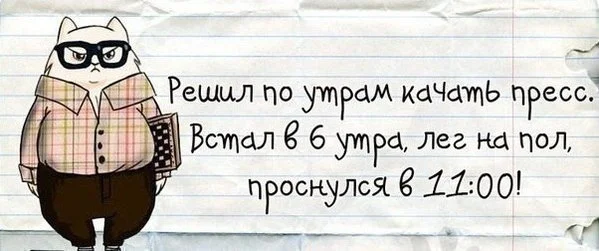 Решил по утрам качать пресс.
Встал в 6 утра, лег на пол,
проснулся в 11:00!